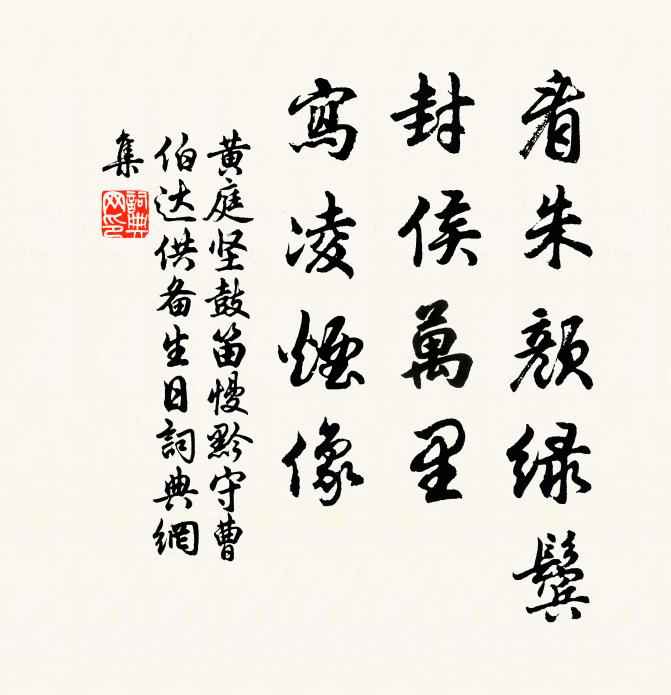 看朱颜绿鬓
封侯萬里
寫凌煙像
黄庭坚鼓笛慢黔守曹
伯达供备生日詞典網
集
詞典
网印